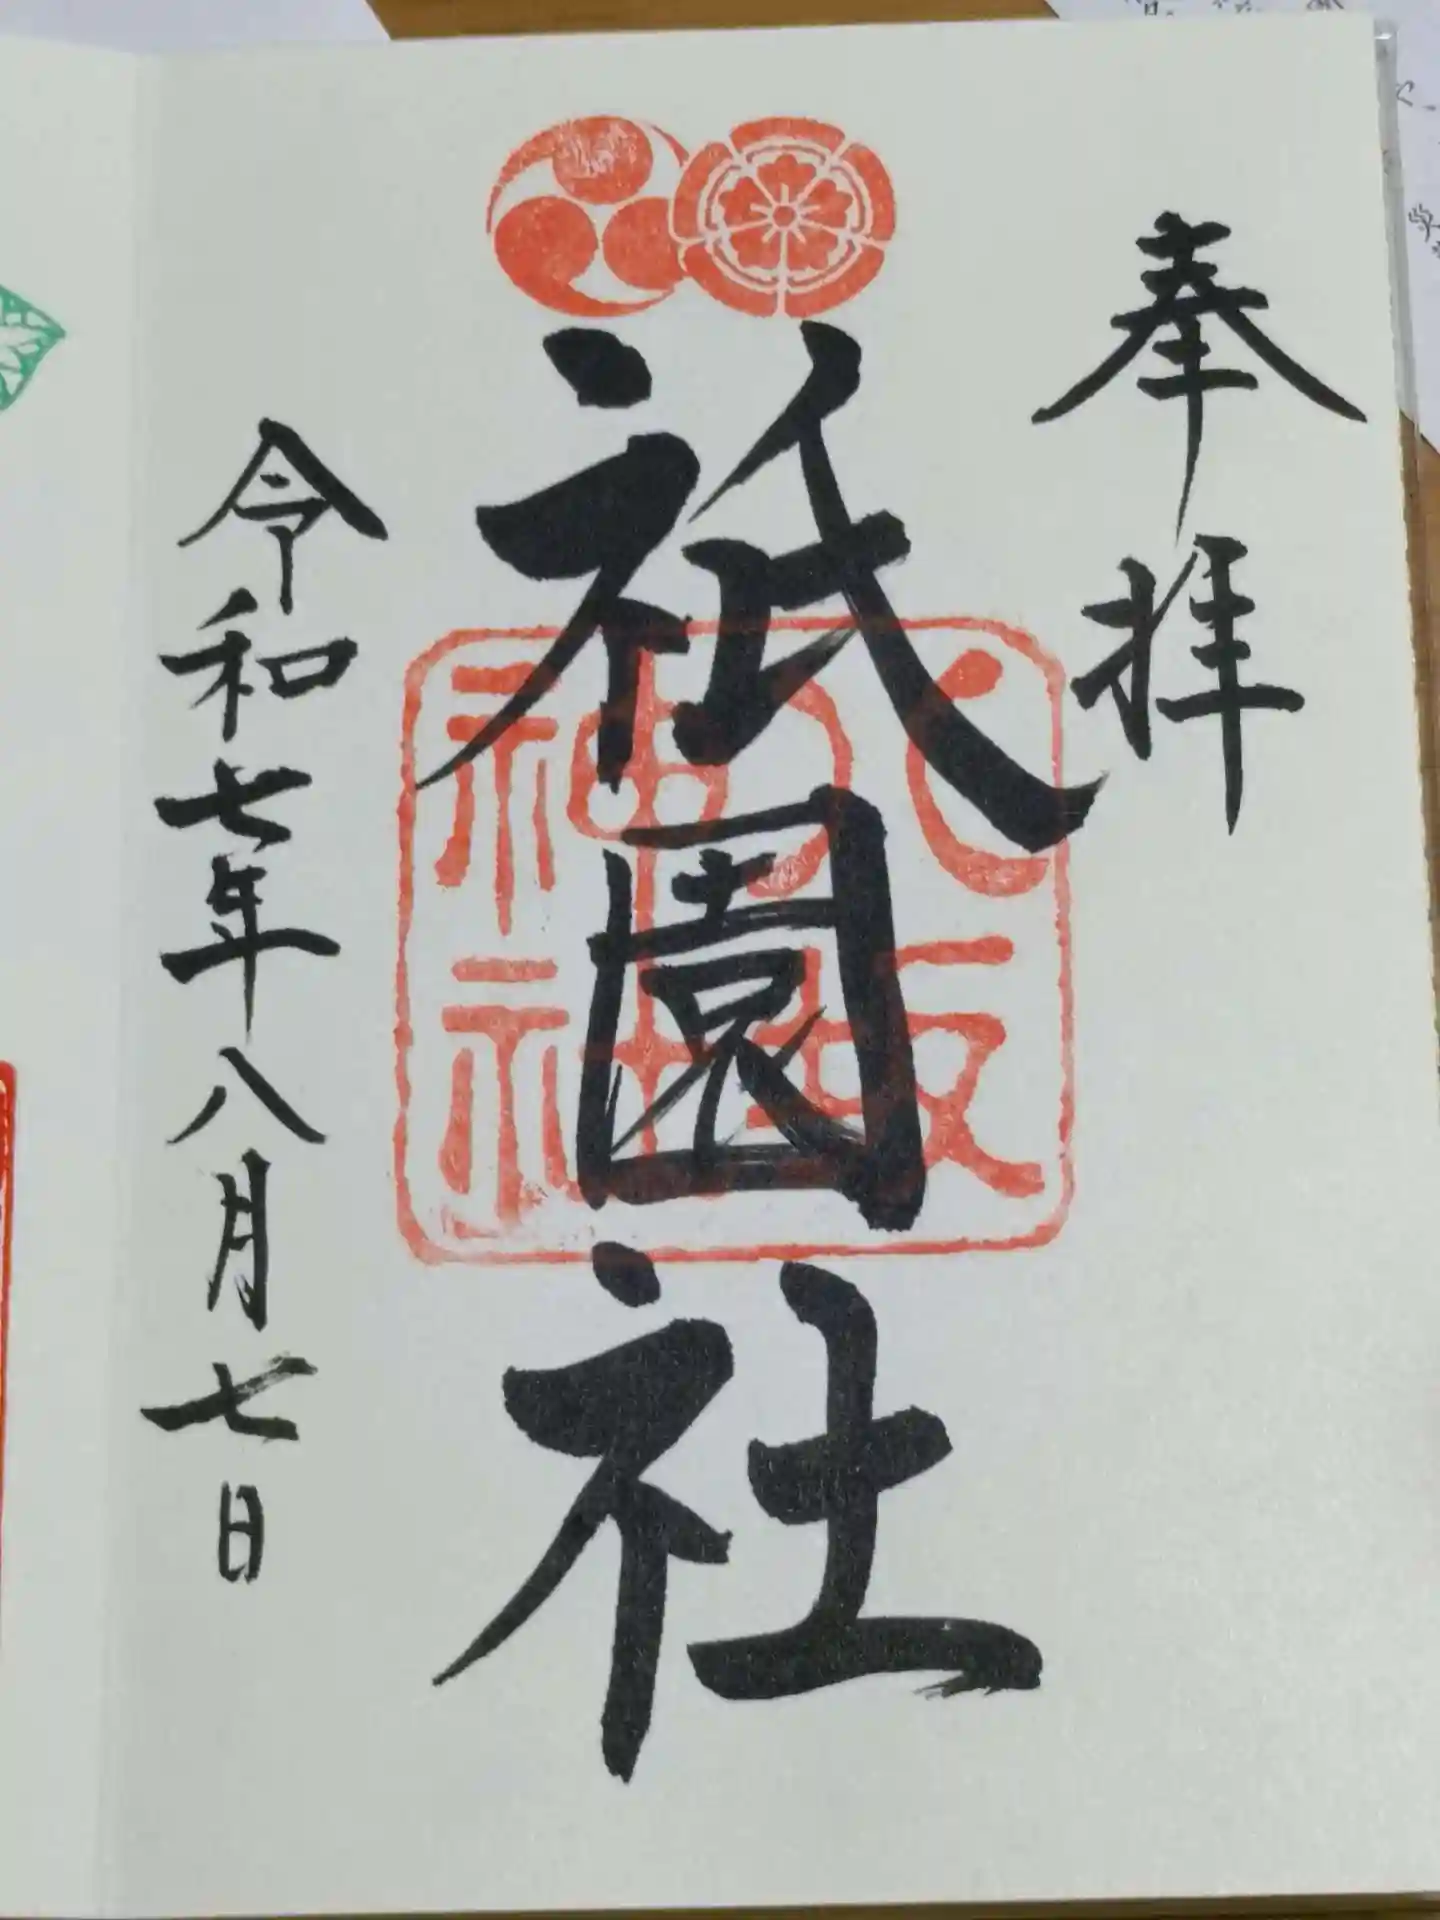 奉拝
祇園社
八坂神社
令和七年八月七日